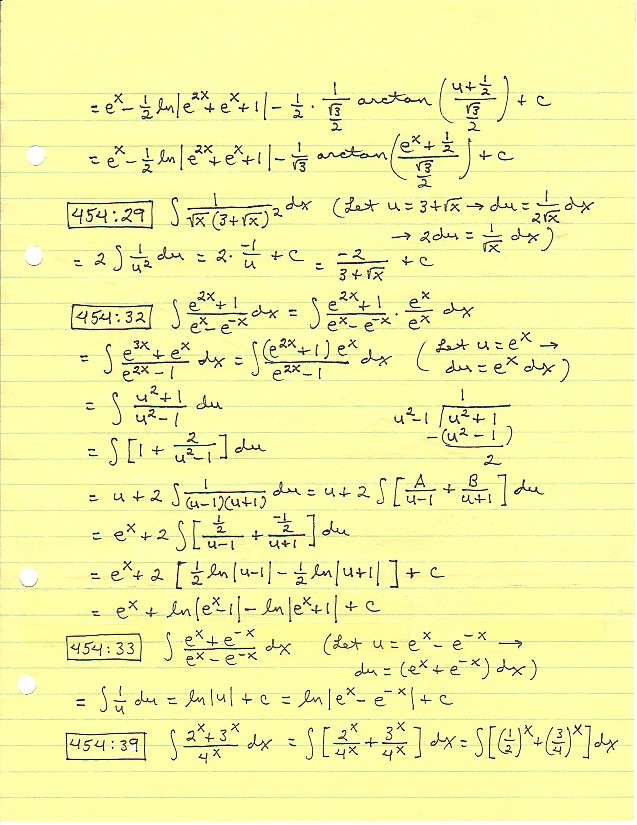 = e^x - 1/2 ln|e^{2x} + e^x + 1| - 1/2 · 1/(√3/2) arctan((u + 1/2)/(√3/2)) + c
= e^x - 1/2 ln|e^{2x} + e^x + 1| - 1/√3 arctan((e^x + 1/2)/(√3/2)) + c
454:29 ∫ 1/(√x (3+√x)^2) dx (Let u = 3+√x → du = 1/(2√x) dx
→ 2du = 1/√x dx)
= 2 ∫ 1/u^2 du = 2 · -1/u + c = -2/(3+√x) + c
454:32 ∫ (e^{2x}+1)/(e^x - e^{-x}) dx = ∫ (e^{2x}+1)/(e^x - e^{-x}) · e^x/e^x dx
= ∫ (e^{3x} + e^x)/(e^{2x} - 1) dx = ∫ (e^{2x}+1) e^x/(e^{2x} - 1) dx (Let u = e^x →
du = e^x dx)
= ∫ (u^2+1)/(u^2-1) du
1
u^2-1 √(u^2+1)
-(u^2-1)
2
= ∫ [1 + 2/(u^2-1)] du
= u + 2 ∫ 1/((u-1)(u+1)) du = u + 2 ∫ [A/(u-1) + B/(u+1)] du
= e^x + 2 ∫ [(1/2)/(u-1) + (-1/2)/(u+1)] du
= e^x + 2 [1/2 ln|u-1| - 1/2 ln|u+1|] + c
= e^x + ln|e^x-1| - ln|e^x+1| + c
454:33 ∫ (e^x + e^{-x})/(e^x - e^{-x}) dx (Let u = e^x - e^{-x} →
du = (e^x + e^{-x}) dx)
= ∫ 1/u du = ln|u| + c = ln|e^x - e^{-x}| + c
454:39 ∫ (2^x + 3^x)/4^x dx = ∫ [2^x/4^x + 3^x/4^x] dx = ∫ [(1/2)^x + (3/4)^x] dx